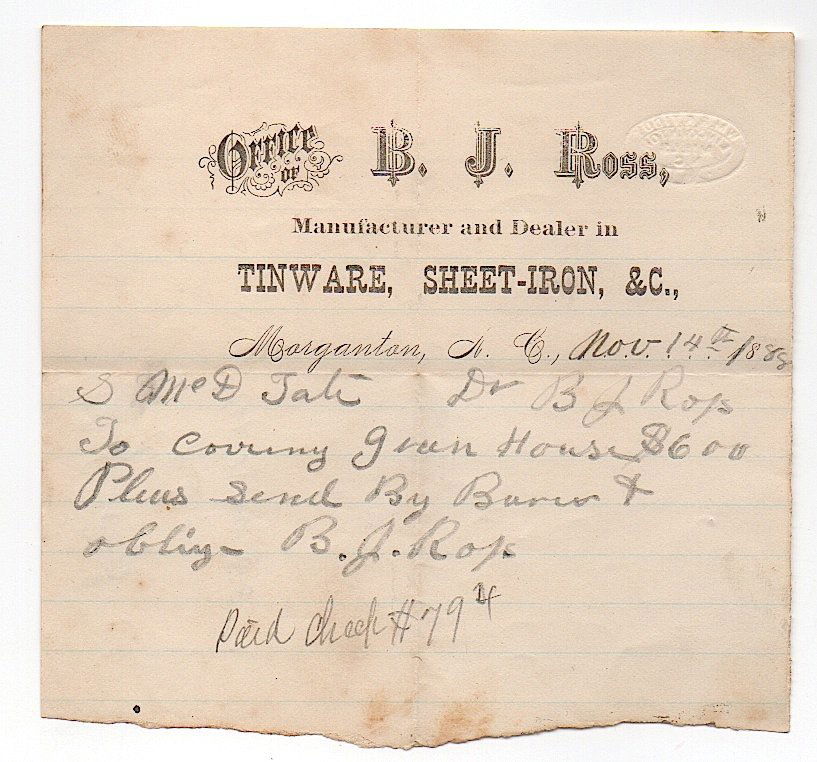 OFFICE OF B. J. ROSS,
Manufacturer and Dealer in
TINWARE, SHEET-IRON, &C.,
Morganton, N. C., Nov. 14th 1888
S McD Tate Dr B J Ross
To covring green House $600
Pleas send By Barer &
oblige B. J. Ross
Paid Check #794